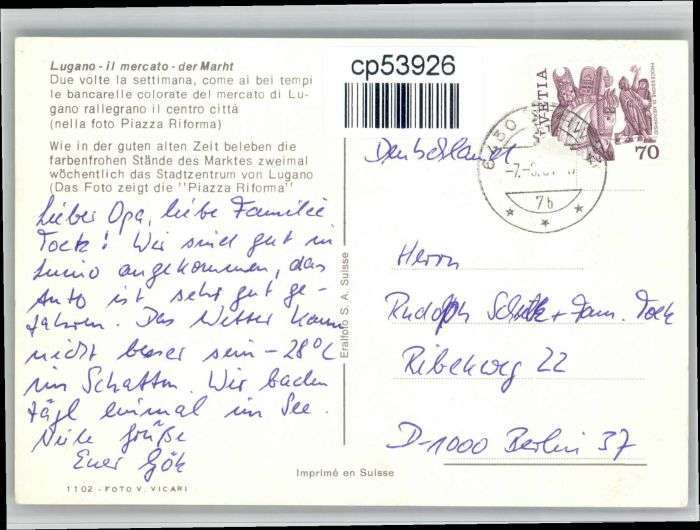 Lugano - il mercato - der Marht
Due volte la settimana, come ai bei tempi
le bancarelle colorate del mercato di Lu-
gano rallegrano il centro città
(nella foto Piazza Riforma)
Wie in der guten alten Zeit beleben die
farbenfrohen Stände des Marktes zweimal
wöchentlich das Stadtzentrum von Lugano
(Das Foto zeigt die "Piazza Riforma"
Lieber Opa, liebe Familie
Tock! Wir sind gut in
angekommen, das
Auto ist sehr gut ge-
fahren. Das Wetter kann
nicht besser sein - 28°C
im Schatten. Wir baden
tägl einmal im See.
Viele Grüße
Euer
1102 - FOTO V. VICARI
Eralfoto S. A. Suisse
Imprimé en Suisse
cp53926
HELVETIA
70
7b
Deutschland
Herrn
Rudolph + Fam. Tock
Ribeweg 22
D-1000 Berlin 37